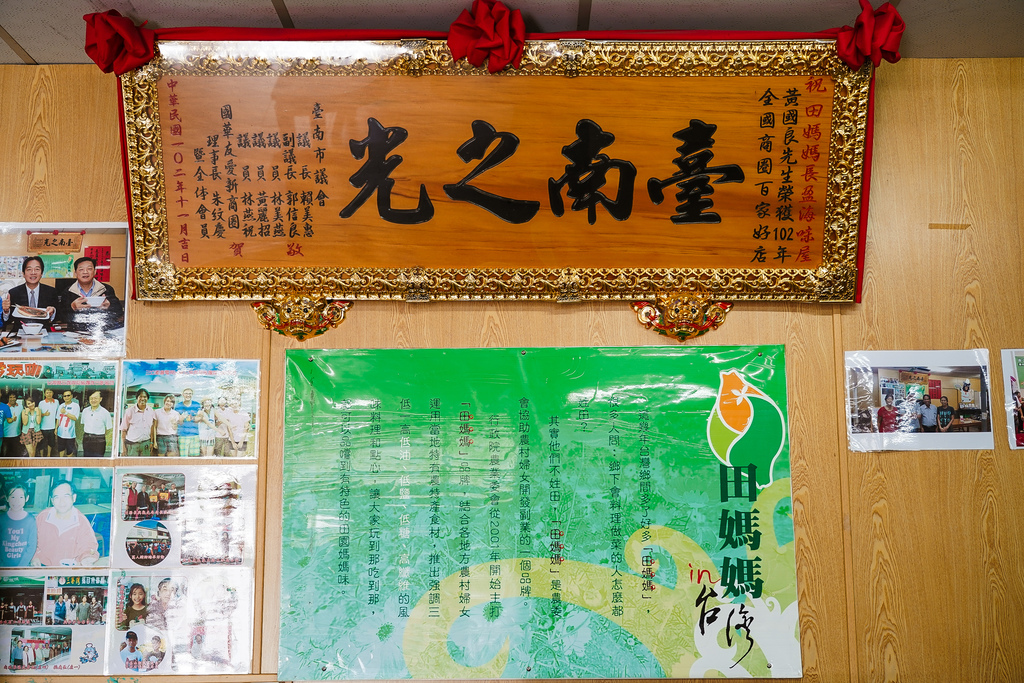 祝 田媽媽長盈海味屋
黃國良先生榮獲102年
全國商圈百家好店
臺南之光
臺南市議會
議長 賴美惠
副議長 郭信良
議員 林美燕
議員 黃麗招
議員 林燕祝
敬
國華友愛新商圈
理事長 朱紋慶
暨全体會員
賀
中華民國一〇二年十一月吉日
臺南之光
田媽媽
in
台灣
幾年台灣鄉間多了好多「田媽媽」，
很多人問：鄉下會料理做菜的人怎麼都
姓田？
其實他們不姓田，「田媽媽」是農委
會協助農村婦女開發副業的一個品牌。
行政院農業委會從2001年開始主打
「田媽媽」品牌，結合各地方農村婦女
運用當地特有農特產食材，推出強調三
低一高低油、低鹽、低糖、高纖的風
味料理和點心，讓大家玩到那吃到那，
可以品嚐到有特色的田園媽媽味。